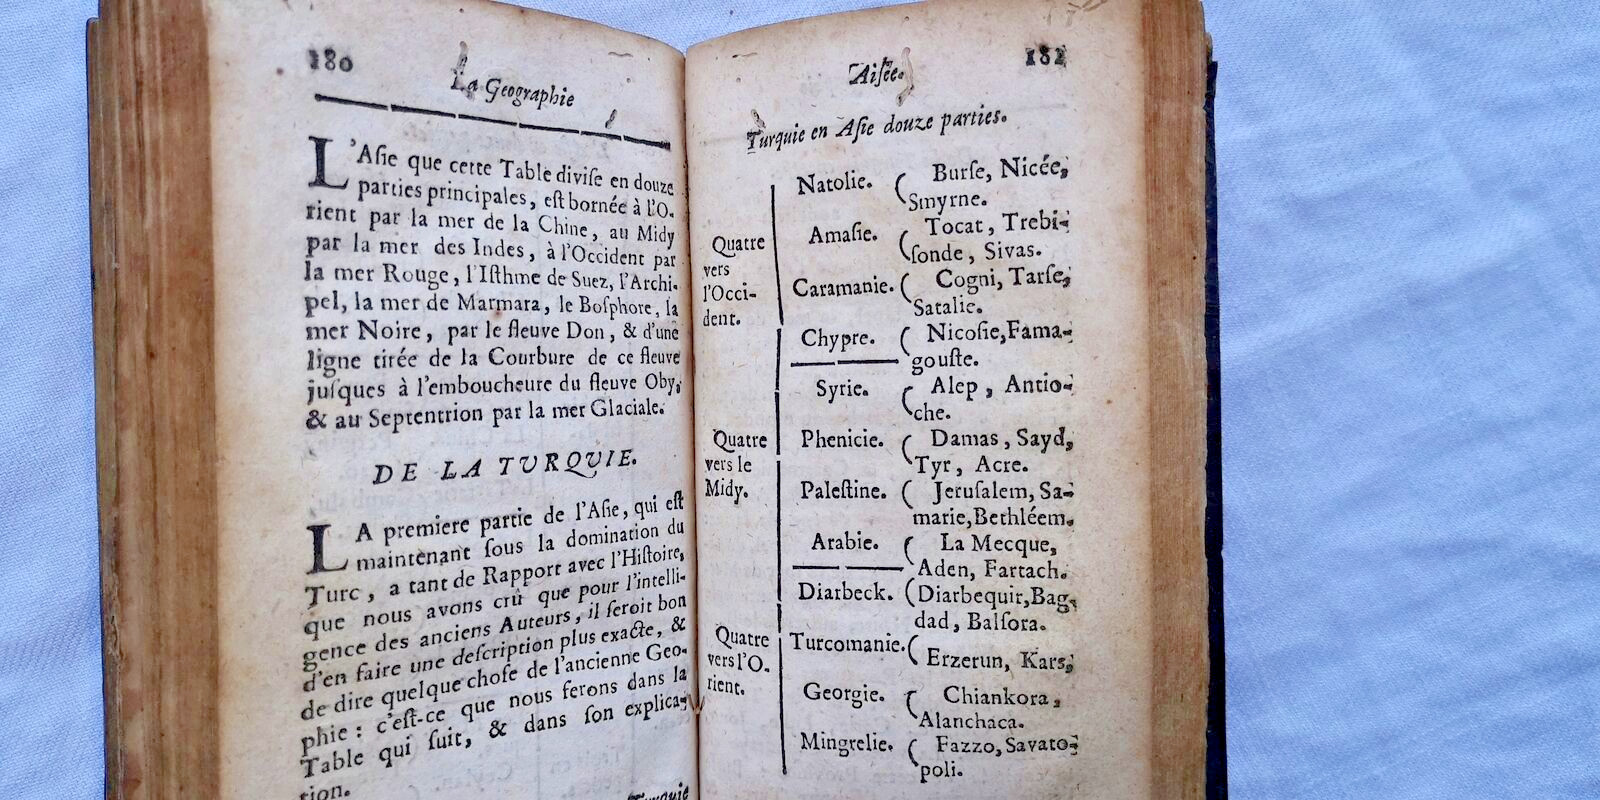 180
La Geographie
L'Asie que cette Table divise en douze
parties principales, est bornée à l'O-
rient par la mer de la Chine, au Midy
par la mer des Indes, à l'Occident par
la mer Rouge, l'Isthme de Suez, l'Archi-
pel, la mer de Marmara, le Bosphore, la
mer Noire, par le fleuve Don, & d'une
ligne tirée de la Courbure de ce fleuve
jusques à l'emboucheure du fleuve Oby,
& au Septentrion par la mer Glaciale.
DE LA TVRQVIE.
LA premiere partie de l'Asie, qui est
maintenant sous la domination du
Turc, a tant de Rapport avec l'Histoire,
que nous avons crû que pour l'intelli-
gence des anciens Auteurs, il seroit bon
d'en faire une description plus exacte, &
de dire quelque chose de l'ancienne Geo-
phie : c'est-ce que nous ferons dans la
Table qui suit, & dans son explica-
tion.
Turquie
Aisée.
181
Turquie en Asie douze parties.
Quatre
vers
l'Occi-
dent.
Natolie. ( Burse, Nicée,
Smyrne.
Amasie. ( Tocat, Trebi-
sonde, Sivas.
Caramanie. ( Cogni, Tarse,
Satalie.
Chypre. ( Nicosie, Fama-
gouste.
Quatre
vers le
Midy.
Syrie. ( Alep, Antio-
che.
Phenicie. ( Damas, Sayd,
Tyr, Acre.
Palestine. ( Jerusalem, Sa-
marie, Bethléem.
Arabie. ( La Mecque,
Aden, Fartach.
Quatre
vers l'O-
rient.
Diarbeck. ( Diarbequir, Bag-
dad, Balsora.
Turcomanie. ( Erzerun, Kars,
Georgie. ( Chiankora,
Alanchaca.
Mingrelie. ( Fazzo, Savato-
poli.